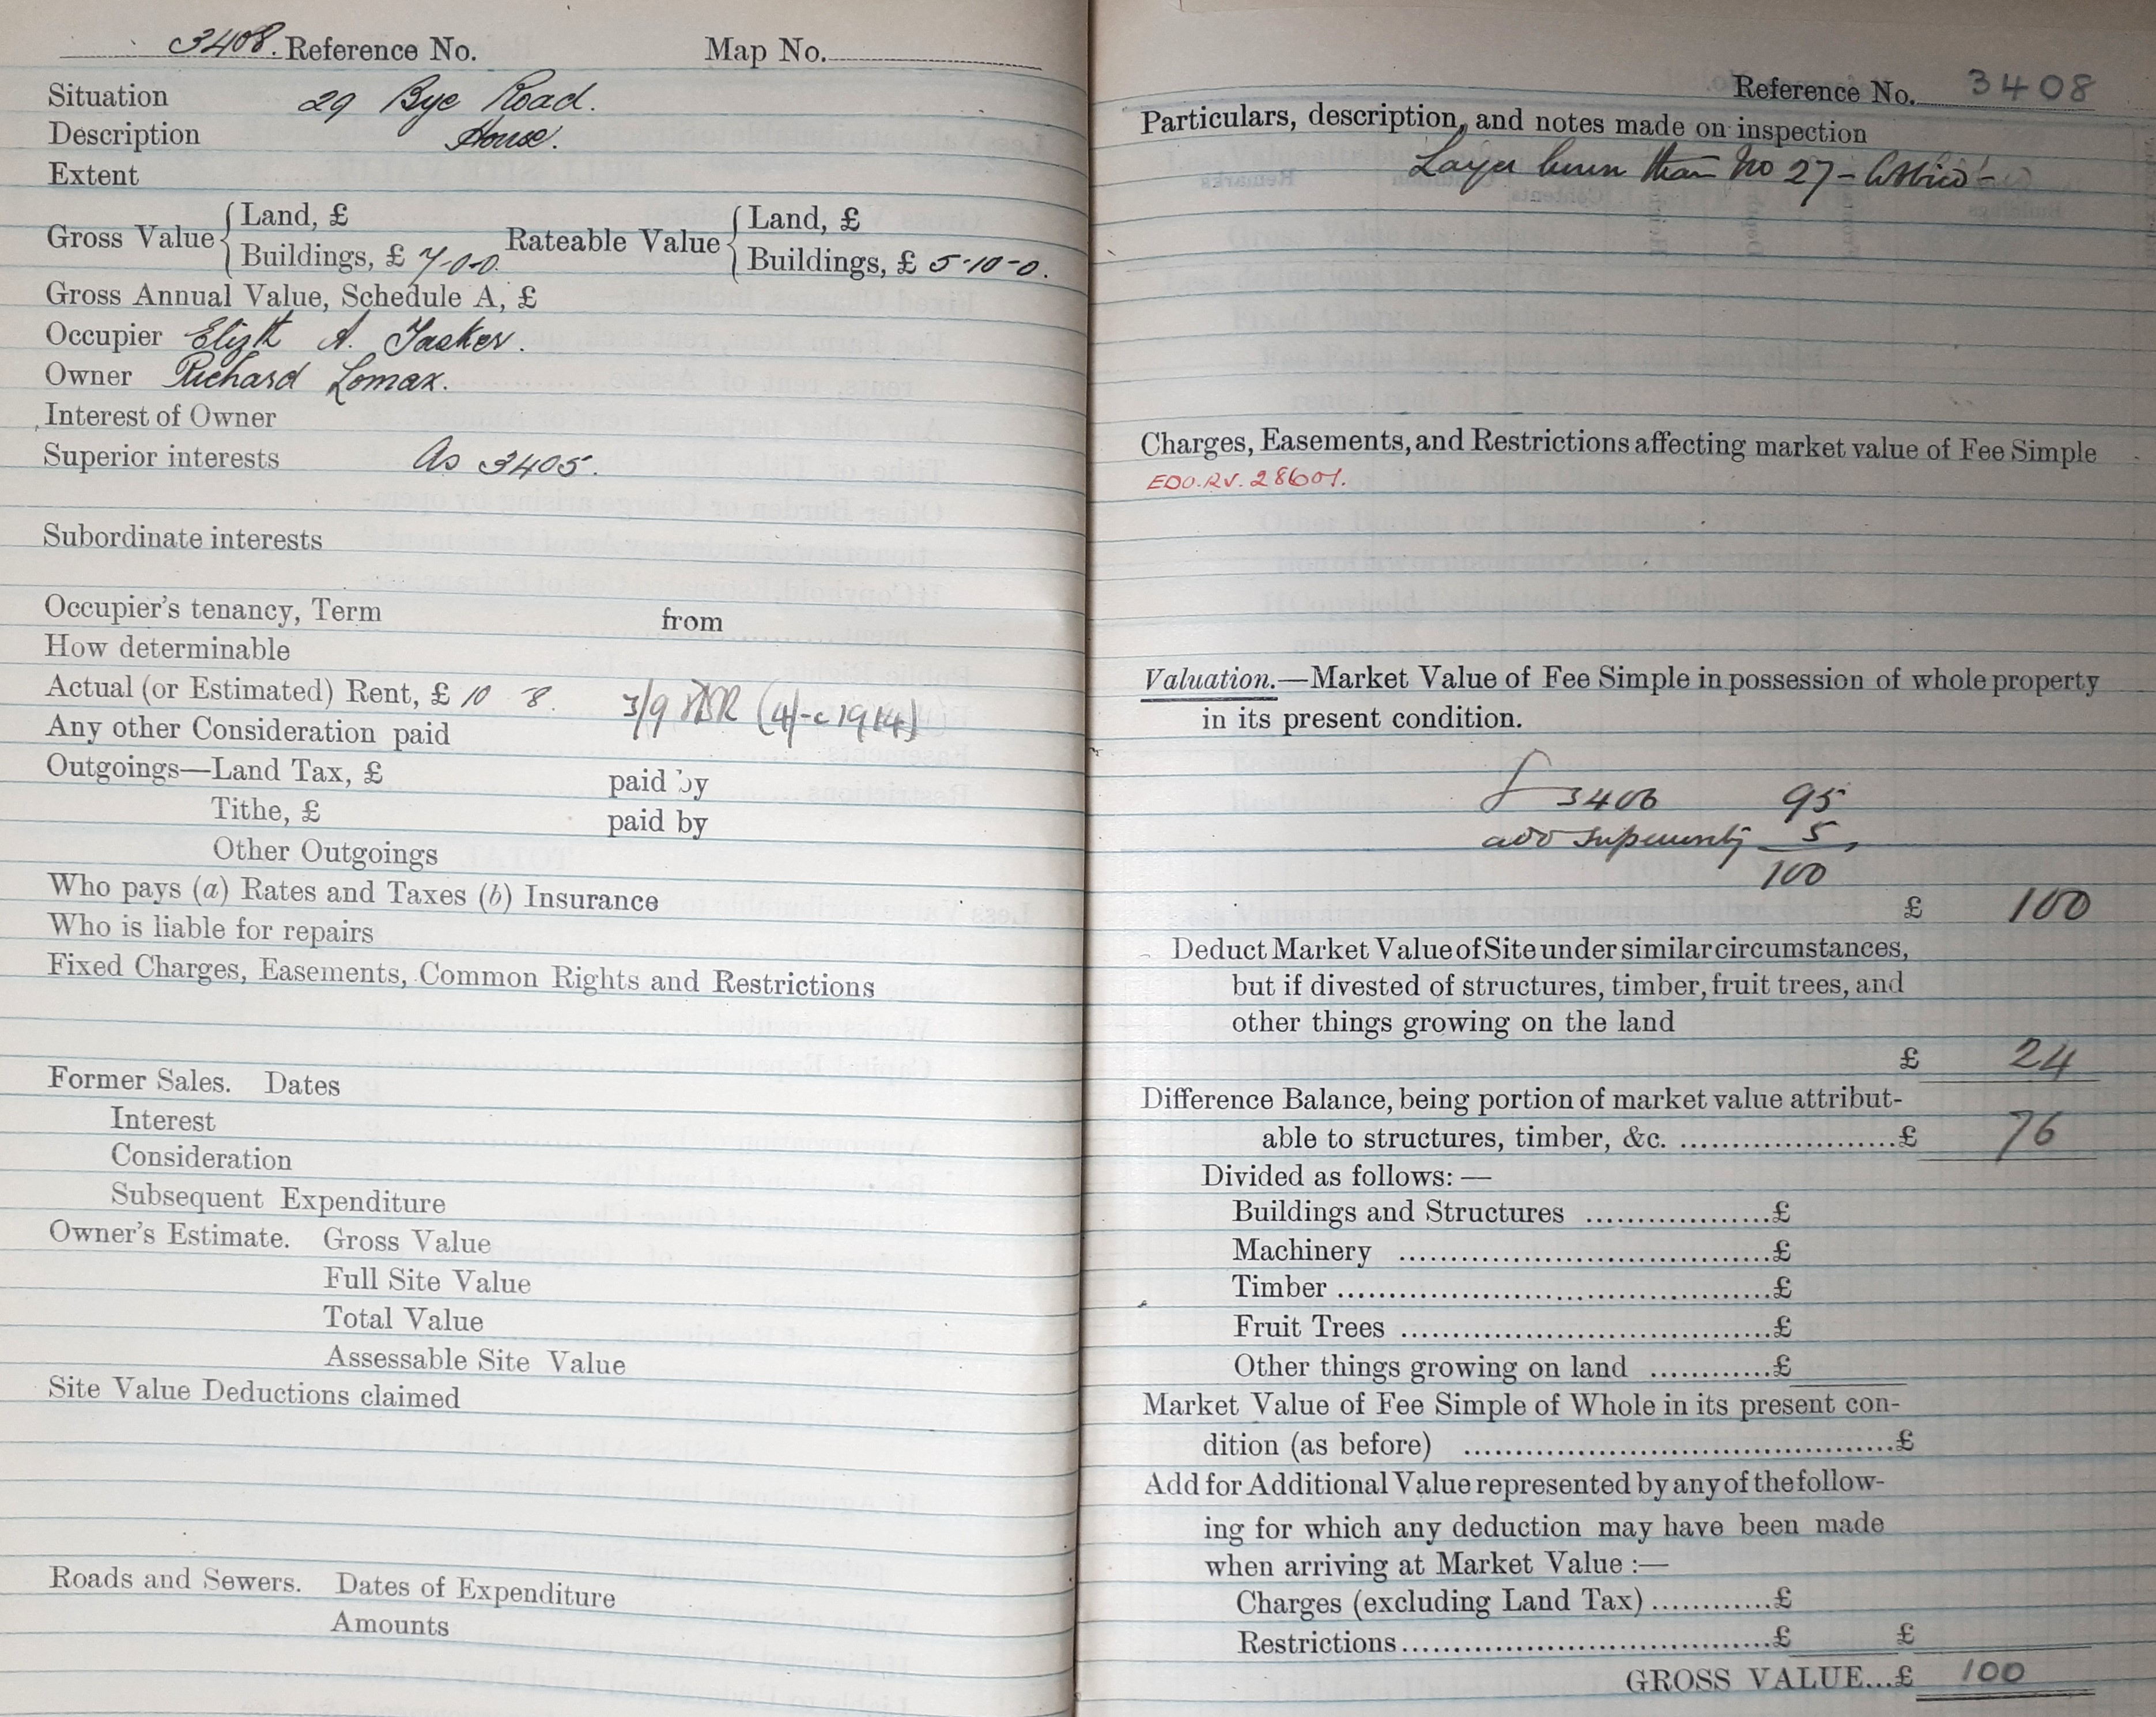 3408. Reference No. Map No.
Situation 29 Bye Road.
Description House.
Extent
Gross Value { Land, £
Buildings, £ 7-0-0. Rateable Value { Land, £
Buildings, £ 5-10-0.
Gross Annual Value, Schedule A, £
Occupier Elizth A. Tasker.
Owner Richard Lomax.
Interest of Owner
Superior interests As 3405.
Subordinate interests
Occupier's tenancy, Term from
How determinable
Actual (or Estimated) Rent, £ 10 8. 3/9 (4/- c 1914)
Any other Consideration paid
Outgoings—Land Tax, £ paid by
Tithe, £ paid by
Other Outgoings
Who pays (a) Rates and Taxes (b) Insurance
Who is liable for repairs
Fixed Charges, Easements, Common Rights and Restrictions
Former Sales. Dates
Interest
Consideration
Subsequent Expenditure
Owner's Estimate. Gross Value
Full Site Value
Total Value
Assessable Site Value
Site Value Deductions claimed
Roads and Sewers. Dates of Expenditure
Amounts
Reference No. 3408
Particulars, description, and notes made on inspection
than No 27 -
Charges, Easements, and Restrictions affecting market value of Fee Simple
EDO.RV. 28601.
Valuation.—Market Value of Fee Simple in possession of whole property
in its present condition.
3406 95
add 5
100
£ 100
Deduct Market Value of Site under similar circumstances,
but if divested of structures, timber, fruit trees, and
other things growing on the land
£ 24
Difference Balance, being portion of market value attribut-
able to structures, timber, &c. ......................£ 76
Divided as follows:—
Buildings and Structures ..................£
Machinery ....................................£
Timber ..........................................£
Fruit Trees ....................................£
Other things growing on land ............£
Market Value of Fee Simple of Whole in its present con-
dition (as before) ..........................................£
Add for Additional Value represented by any of the follow-
ing for which any deduction may have been made
when arriving at Market Value :—
Charges (excluding Land Tax) ............£
Restrictions ....................................£ £
GROSS VALUE...£ 100